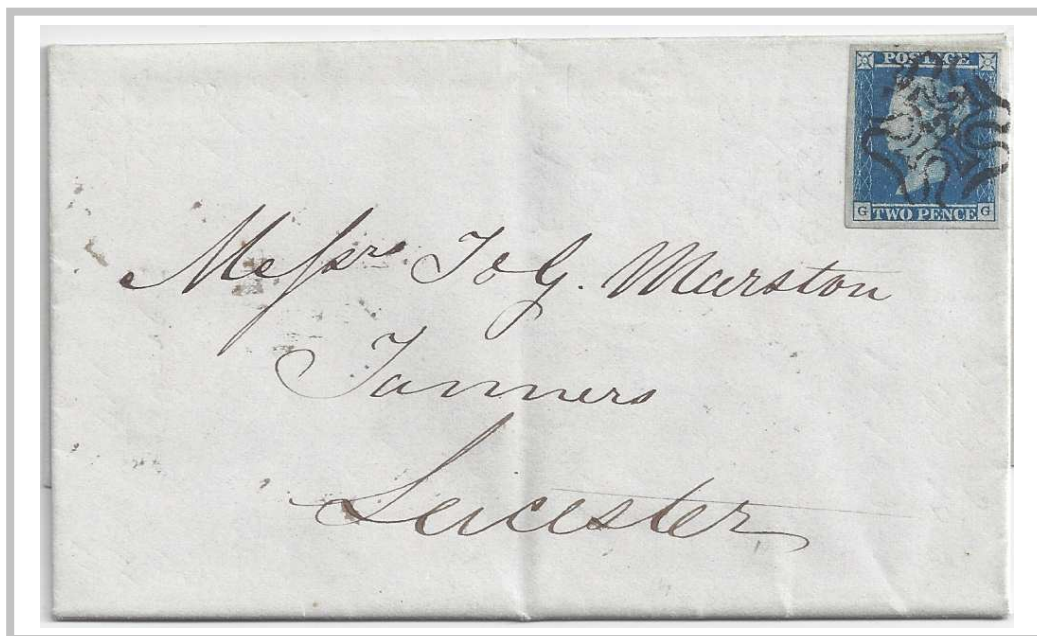 POSTAGE
G TWO PENCE G
Messrs J & G. Marston
Tanners
Leicester